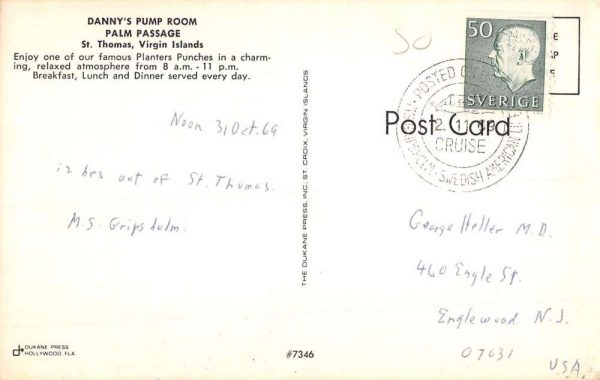 DANNY'S PUMP ROOM
PALM PASSAGE
St. Thomas, Virgin Islands
Enjoy one of our famous Planters Punches in a charm-
ing, relaxed atmosphere from 8 a.m. - 11 p.m.
Breakfast, Lunch and Dinner served every day.
Noon 31 Oct. 69
12 hrs out of St. Thomas.
M.S. Gripsholm.
DUKANE PRESS
HOLLYWOOD, FLA
THE DUKANE PRESS, INC. ST. CROIX, VIRGIN ISLANDS
#7346
50
50
SVERIGE
POSTED
2. 11. 69
CRUISE
SWEDISH AMERICAN
Post Card
George Heller M.D.
460 Engle St.
Englewood N.J.
07631
USA